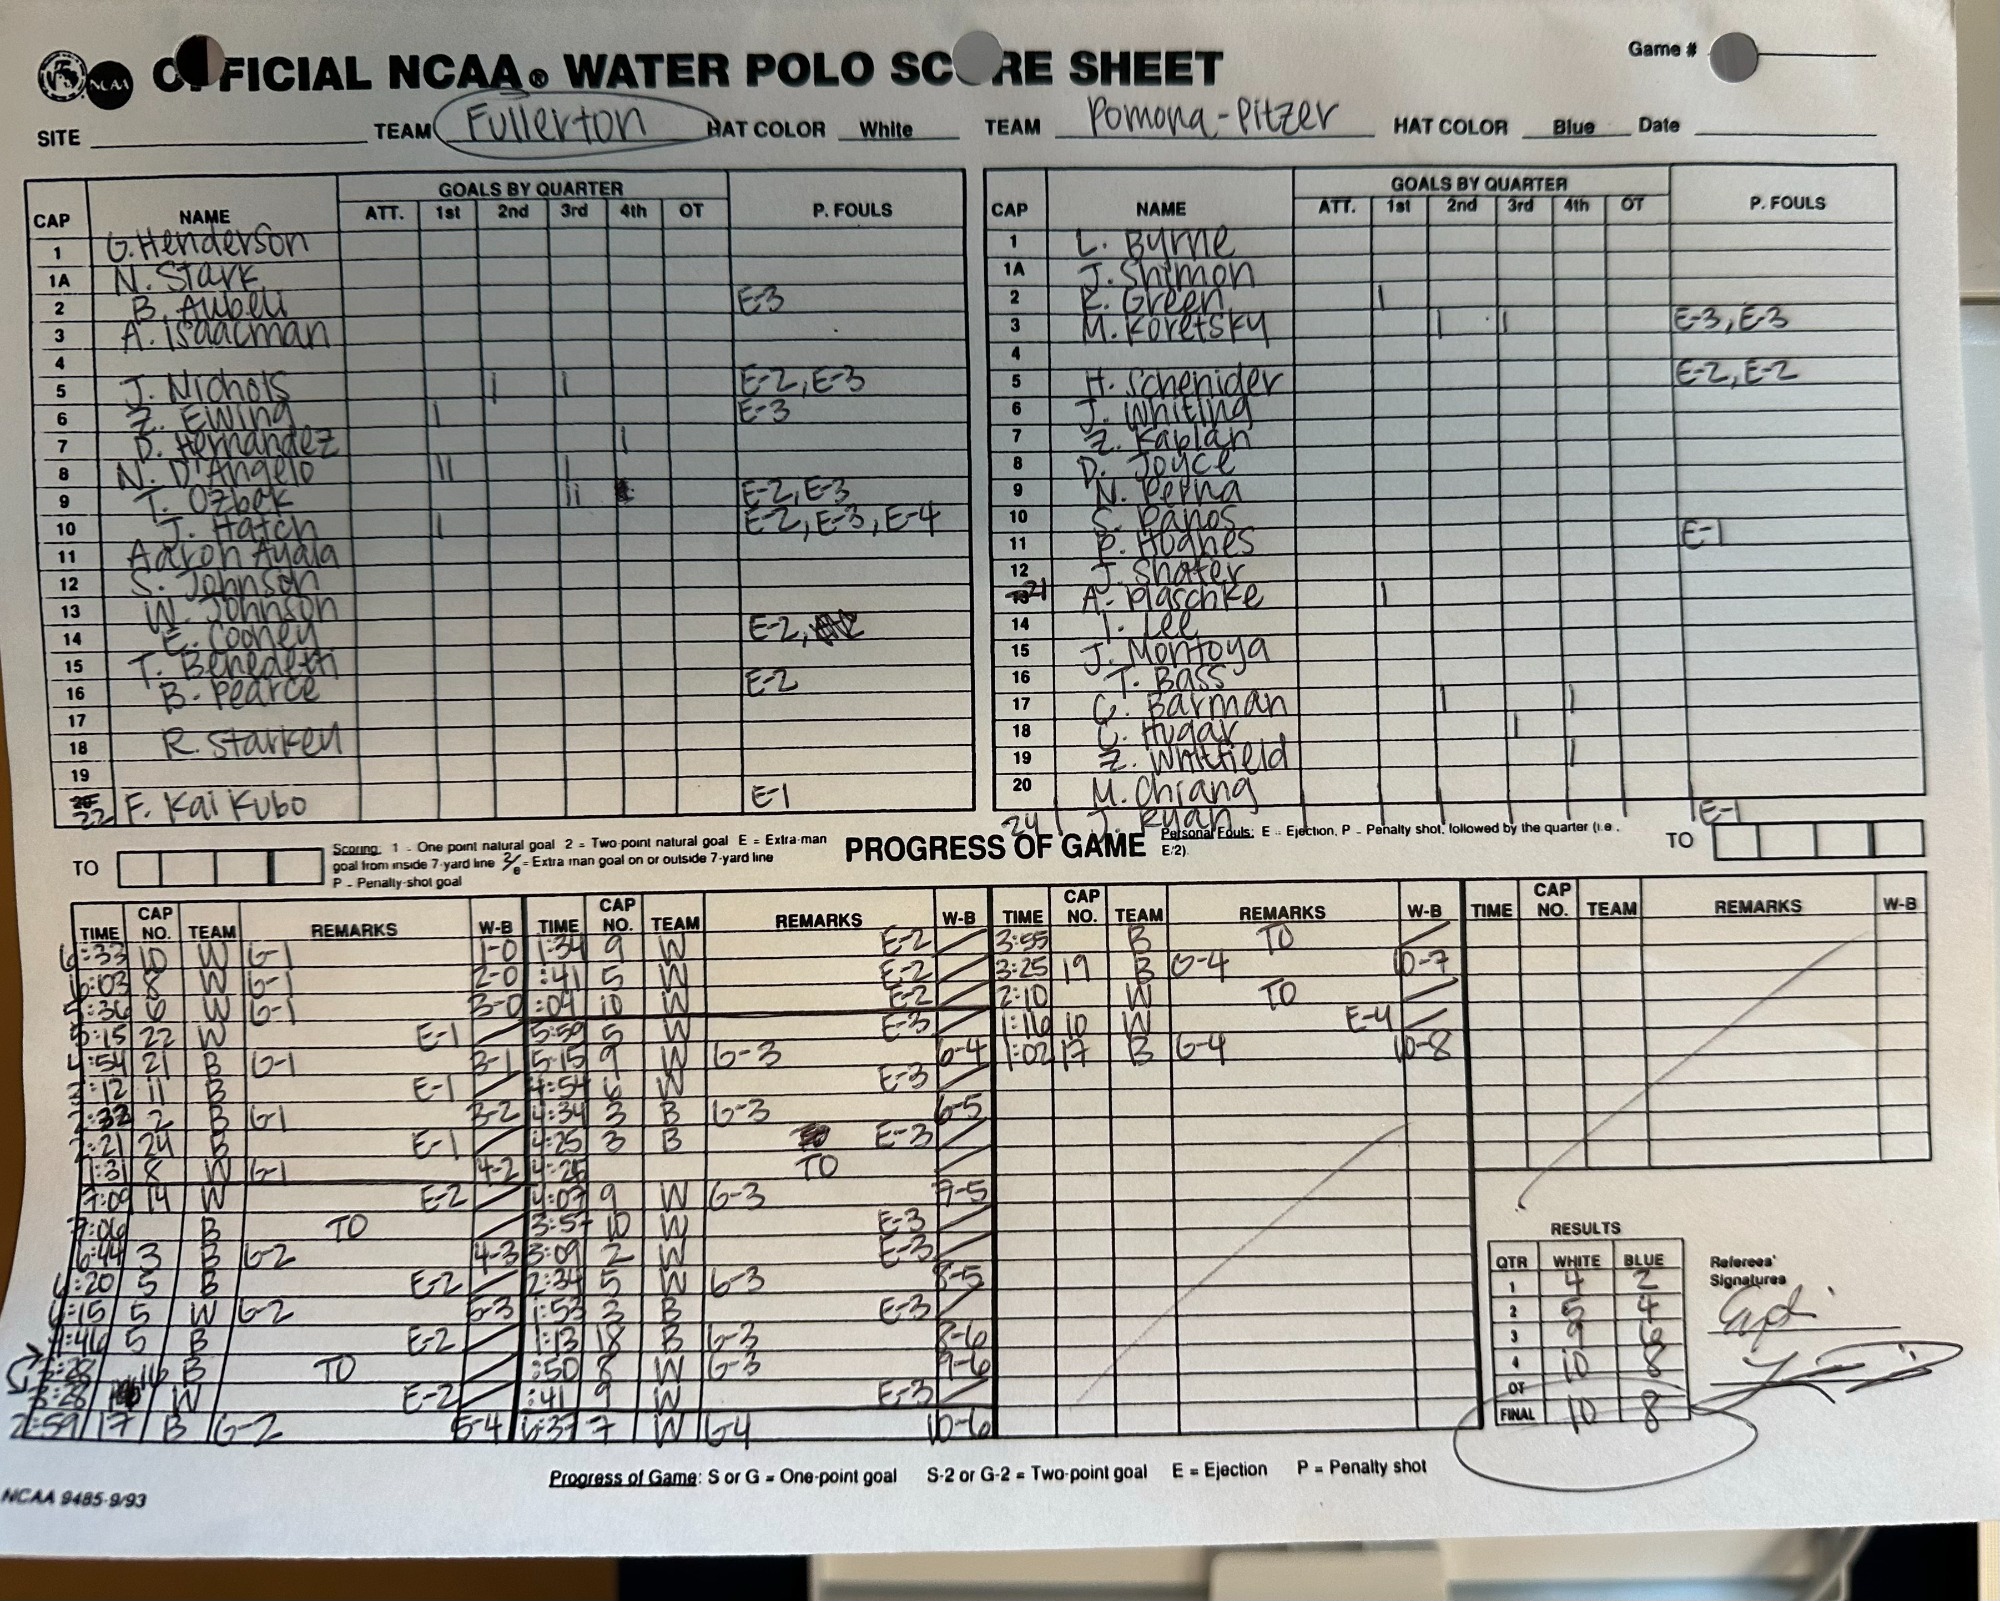 OFFICIAL NCAA® WATER POLO SCORE SHEET Game #
SITE TEAM Fullerton HAT COLOR White TEAM Pomona-Pitzer HAT COLOR Blue Date
CAP NAME ATT. GOALS BY QUARTER 1st 2nd 3rd 4th OT P. FOULS
1 G. Henderson
1A N. Stark
2 B. Aubeli E-3
3 A. Isaacman
4
5 J. Nichols | | E-2, E-3
6 Z. Ewing | E-3
7 D. Hernandez |
8 N. D'Angelo || |
9 T. Ozbek || E-2, E-3
10 J. Hatch | E-2, E-3, E-4
11 Aaron Ayala
12 S. Johnson
13 W. Johnson
14 E. Cooney E-2,
15 T. Benedetti
16 B. Pearce E-2
17
18 R. Starkey
19
22 F. Kai Kubo E-1
CAP NAME ATT. GOALS BY QUARTER 1st 2nd 3rd 4th OT P. FOULS
1 L. Byrne
1A J. Shimon
2 K. Green |
3 M. Koretsky | | E-3, E-3
4
5 H. Schenider E-2, E-2
6 J. Whiting
7 Z. Kaplan
8 D. Joyce
9 N. Perna
10 S. Panos
11 P. Hughes E-1
12 J. Shafer
21 A. Plaschke |
14 I. Lee
15 J. Montoya
16 T. Bass
17 C. Barman | |
18 C. Hugar |
19 Z. Whitfield |
20 M. Chiang
24 J. Ryan E-1
TO
Scoring: 1 - One point natural goal 2 = Two-point natural goal E = Extra-man
goal from inside 7-yard line = Extra man goal on or outside 7-yard line
P - Penalty-shot goal
PROGRESS OF GAME
Personal Fouls: E = Ejection, P - Penalty shot, followed by the quarter (i.e.
E/2).
TO
TIME CAP NO. TEAM REMARKS W-B
6:33 10 W G-1 1-0
6:03 8 W G-1 2-0
5:36 6 W G-1 3-0
5:15 22 W E-1
4:54 21 B G-1 3-1
3:12 11 B E-1
2:33 2 B G-1 3-2
2:21 24 B E-1
1:31 8 W G-1 4-2
7:09 14 W E-2
7:06 B TO
6:44 3 B G-2 4-3
6:20 5 B E-2
6:15 5 W G-2 5-3
4:46 5 B E-2
3:28 B TO
3:28 16 W E-2
2:59 17 B G-2 5-4
TIME CAP NO. TEAM REMARKS W-B
1:34 9 W E-2
:41 5 W E-2
:04 10 W E-2
5:59 5 W E-3
5:15 9 W G-3 6-4
4:54 6 W E-3
4:34 3 B G-3 6-5
4:25 3 B E-3
4:25 TO
4:07 9 W G-3 7-5
3:57 10 W E-3
3:09 2 W E-3
2:34 5 W G-3 8-5
1:53 3 B E-3
1:13 18 B G-3 8-6
:50 8 W G-3 9-6
:41 9 W E-3
6:37 7 W G4 10-6
TIME CAP NO. TEAM REMARKS W-B
3:55 B TO
3:25 19 B G-4 10-7
2:10 W TO
1:16 10 W E-4
1:02 17 B G-4 10-8
TIME CAP NO. TEAM REMARKS W-B
RESULTS
QTR WHITE BLUE
1 4 2
2 5 4
3 9 6
4 10 8
OT
FINAL 10 8
Referees'
Signatures
Progress of Game: S or G = One-point goal S-2 or G-2 = Two-point goal E = Ejection P = Penalty shot
NCAA 9485-9/93